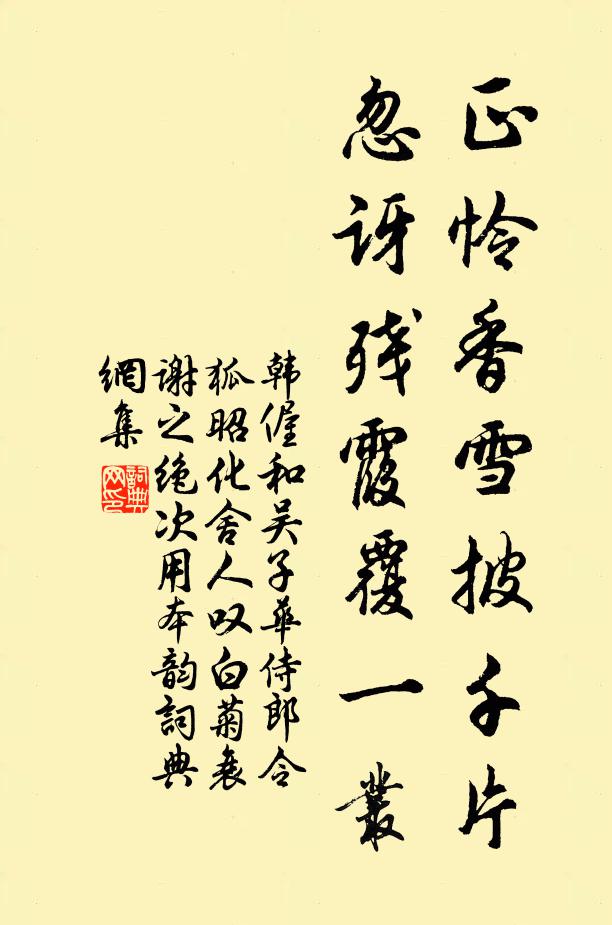 正怜香雪披千片
忽讶残霞覆一叢
韩偓和吴子华侍郎令
狐昭化舍人叹白菊衰
谢之绝次用本韵詞典
網集
詞典
网印